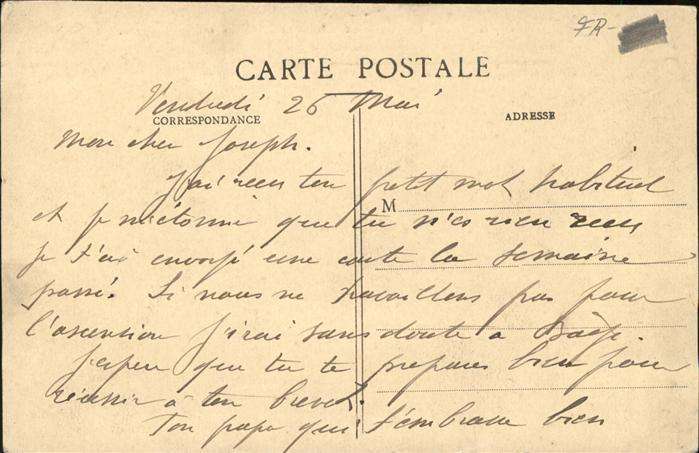 FR-
CARTE POSTALE
Vendredi 26 Mai
CORRESPONDANCE
ADRESSE
Mon cher Joseph.
J'ai recu ton petit mot habituel
M
et je m'étonne que tu n'es rien recu
je t'ai envoyé une carte la semaine
passé. Si nous ne travaillons pas pour
l'ascension j'irai sans doute a
j'espere que tu te prepares bien pour
réussir à ton brevet.
Ton papa qui t'embrasse bien